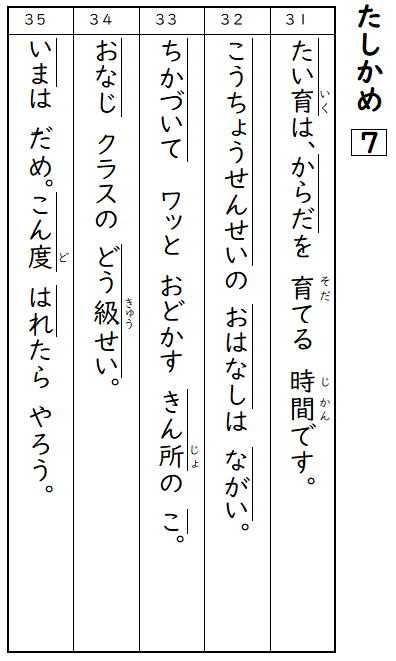 たしかめ 7
31
たい育は、からだを 育てる 時間です。
いく
そだ
じ かん
32
こうちょうせんせいの おはなしは ながい。
33
ちかづいて ワッと おどかす きん所の こ。
じょ
34
おなじ クラスの どう級せい。
きゅう
35
いまは だめ。こん度 はれたら やろう。
ど